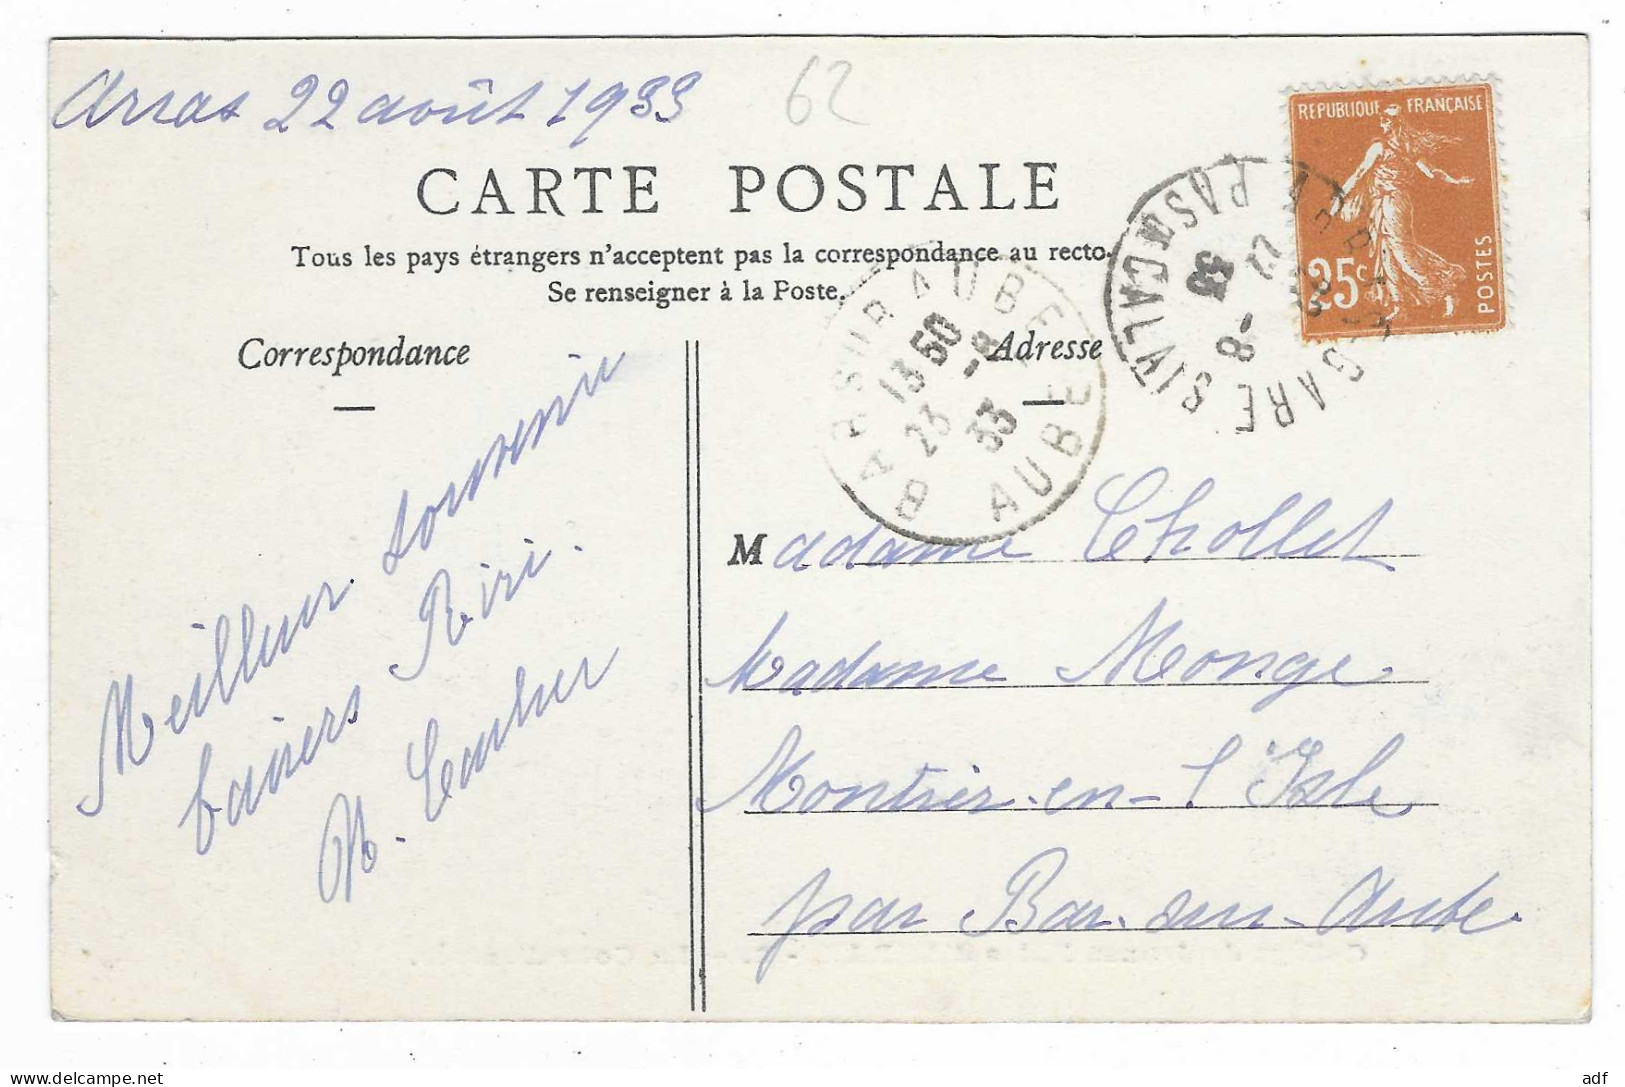 Arras 22 août 1933
62
REPUBLIQUE FRANÇAISE
25c
POSTES
CARTE POSTALE
Tous les pays étrangers n'acceptent pas la correspondance au recto.
Se renseigner à la Poste.
Correspondance
Adresse
BAR SUR AUBE
13 50
23 -8
33
AUBE
GARE
PAS DE CALAIS
22
8-
33
Meilleur souvenir
baisers Riri.
Madame Chollet
Madame Monge
Montier-en-l'Isle
par Bar-sur-Aube
delcampe.net
adf